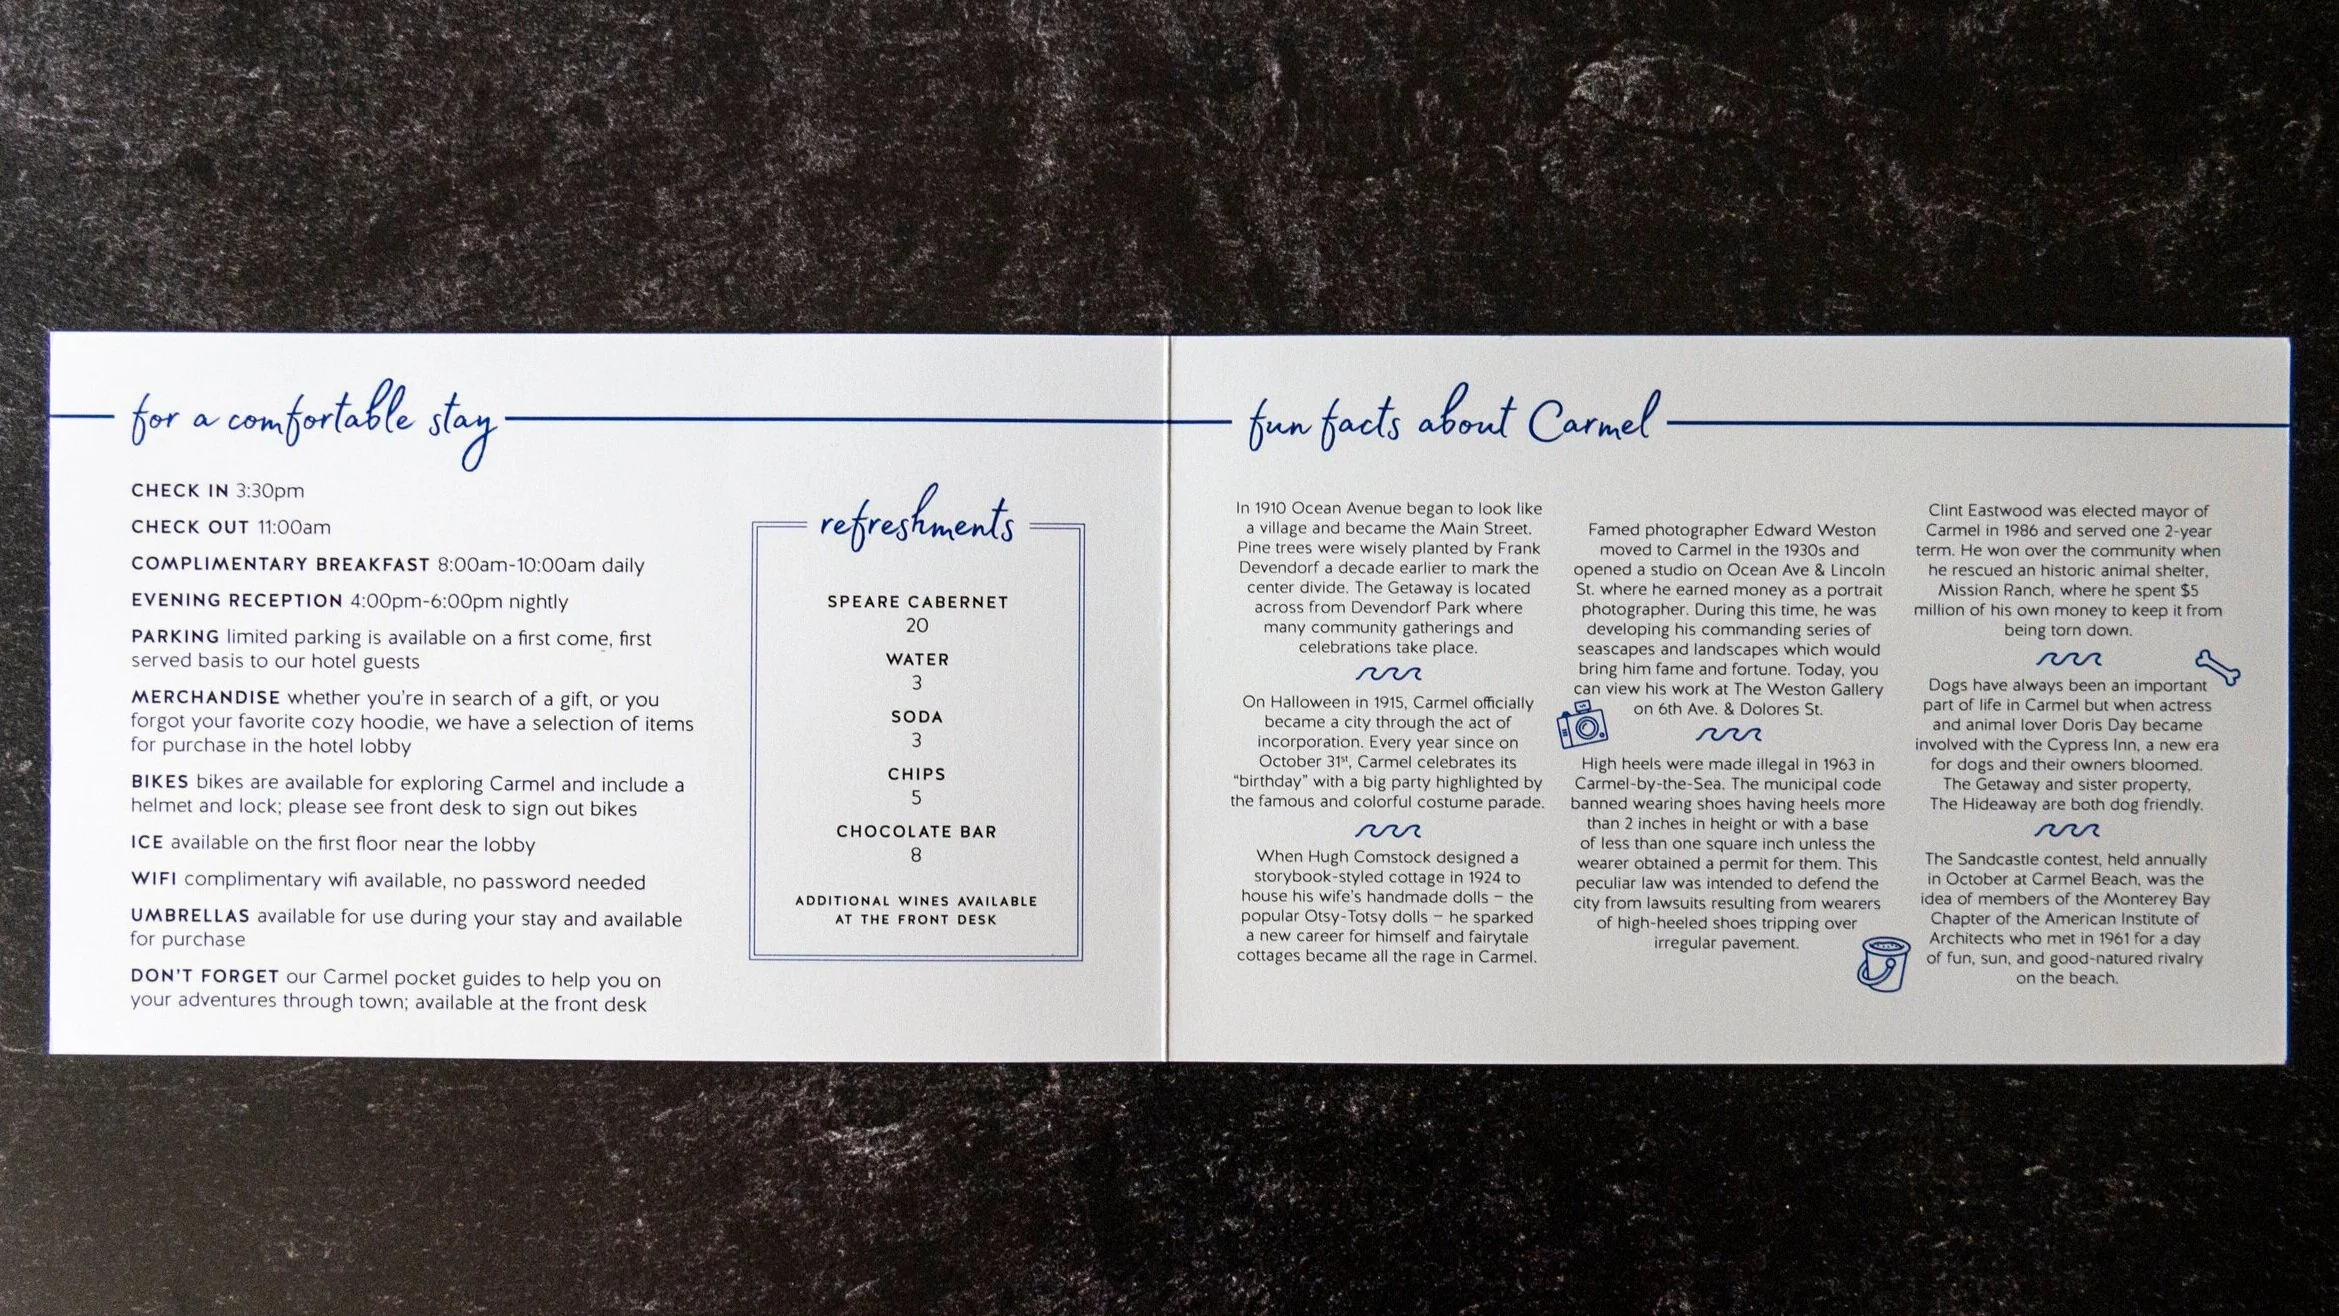 for a comfortable stay
CHECK IN 3:30pm
CHECK OUT 11:00am
COMPLIMENTARY BREAKFAST 8:00am-10:00am daily
EVENING RECEPTION 4:00pm-6:00pm nightly
PARKING limited parking is available on a first come, first
served basis to our hotel guests
MERCHANDISE whether you're in search of a gift, or you
forgot your favorite cozy hoodie, we have a selection of items
for purchase in the hotel lobby
BIKES bikes are available for exploring Carmel and include a
helmet and lock; please see front desk to sign out bikes
ICE available on the first floor near the lobby
WIFI complimentary wifi available, no password needed
UMBRELLAS available for use during your stay and available
for purchase
DON'T FORGET our Carmel pocket guides to help you on
your adventures through town; available at the front desk
refreshments
SPEARE CABERNET
20
WATER
3
SODA
3
CHIPS
5
CHOCOLATE BAR
8
ADDITIONAL WINES AVAILABLE
AT THE FRONT DESK
fun facts about Carmel
In 1910 Ocean Avenue began to look like
a village and became the Main Street.
Pine trees were wisely planted by Frank
Devendorf a decade earlier to mark the
center divide. The Getaway is located
across from Devendorf Park where
many community gatherings and
celebrations take place.
On Halloween in 1915, Carmel officially
became a city through the act of
incorporation. Every year since on
October 31st, Carmel celebrates its
"birthday" with a big party highlighted by
the famous and colorful costume parade.
When Hugh Comstock designed a
storybook-styled cottage in 1924 to
house his wife's handmade dolls – the
popular Otsy-Totsy dolls – he sparked
a new career for himself and fairytale
cottages became all the rage in Carmel.
Famed photographer Edward Weston
moved to Carmel in the 1930s and
opened a studio on Ocean Ave & Lincoln
St. where he earned money as a portrait
photographer. During this time, he was
developing his commanding series of
seascapes and landscapes which would
bring him fame and fortune. Today, you
can view his work at The Weston Gallery
on 6th Ave. & Dolores St.
High heels were made illegal in 1963 in
Carmel-by-the-Sea. The municipal code
banned wearing shoes having heels more
than 2 inches in height or with a base
of less than one square inch unless the
wearer obtained a permit for them. This
peculiar law was intended to defend the
city from lawsuits resulting from wearers
of high-heeled shoes tripping over
irregular pavement.
Clint Eastwood was elected mayor of
Carmel in 1986 and served one 2-year
term. He won over the community when
he rescued an historic animal shelter,
Mission Ranch, where he spent $5
million of his own money to keep it from
being torn down.
Dogs have always been an important
part of life in Carmel but when actress
and animal lover Doris Day became
involved with the Cypress Inn, a new era
for dogs and their owners bloomed.
The Getaway and sister property,
The Hideaway are both dog friendly.
The Sandcastle contest, held annually
in October at Carmel Beach, was the
idea of members of the Monterey Bay
Chapter of the American Institute of
Architects who met in 1961 for a day
of fun, sun, and good-natured rivalry
on the beach.